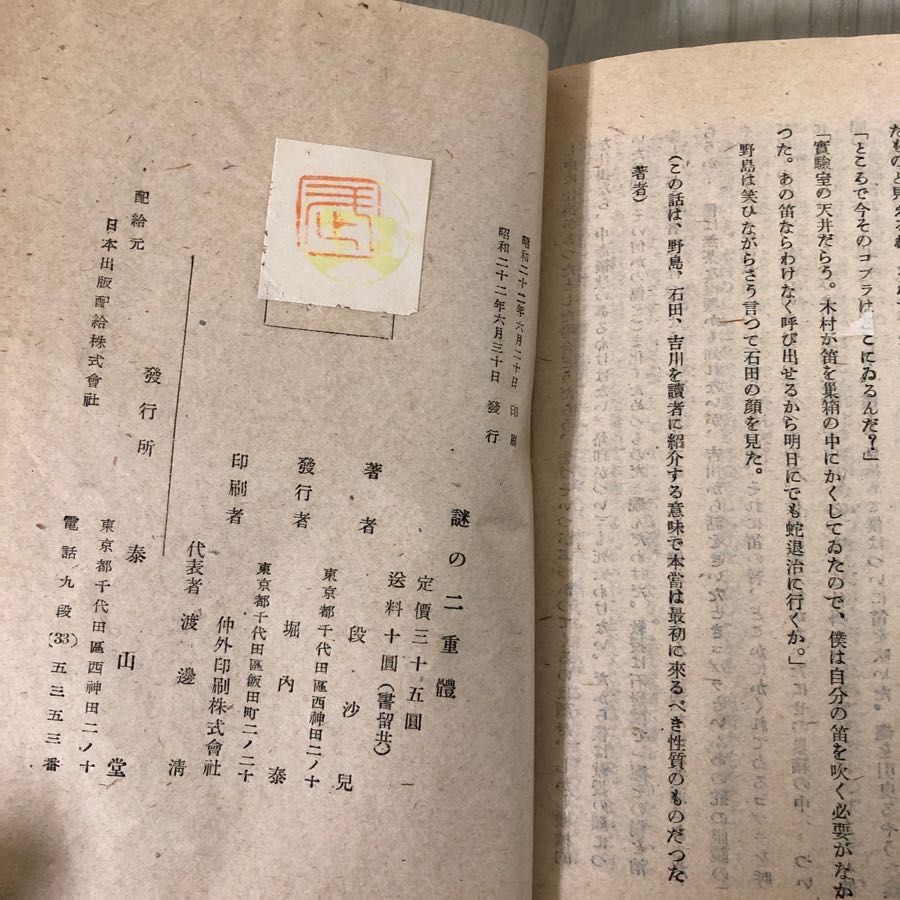 「ところで今そのコブラはどこにゐるんだ？」
「實驗室の天井だらう。木村が笛を巣箱の中にかくしてゐたので、僕は自分の笛を吹く必要がなか
つた。あの笛ならわけなく呼び出せるから明日にでも蛇退治に行くか。」
野島は笑ひながらさう言つて石田の顔を見た。
（この話は、野島、石田、吉川を讀者に紹介する意味で本當は最初に來るべき性質のものだつた
著者）
昭和二十二年六月二十日 印刷
昭和二十二年六月三十日 發行
謎の二重體
定價三十五圓
送料十圓（書留共）
著者 段沙兒
東京都千代田區西神田二ノ十
發行者 堀內泰
東京都千代田區飯田町二ノ二十
印刷者 仲外印刷株式會社
代表者 渡邊清
發行所 泰山堂
東京都千代田區西神田二ノ十
電話九段(33)五三五三番
配給元 日本出版配給株式會社